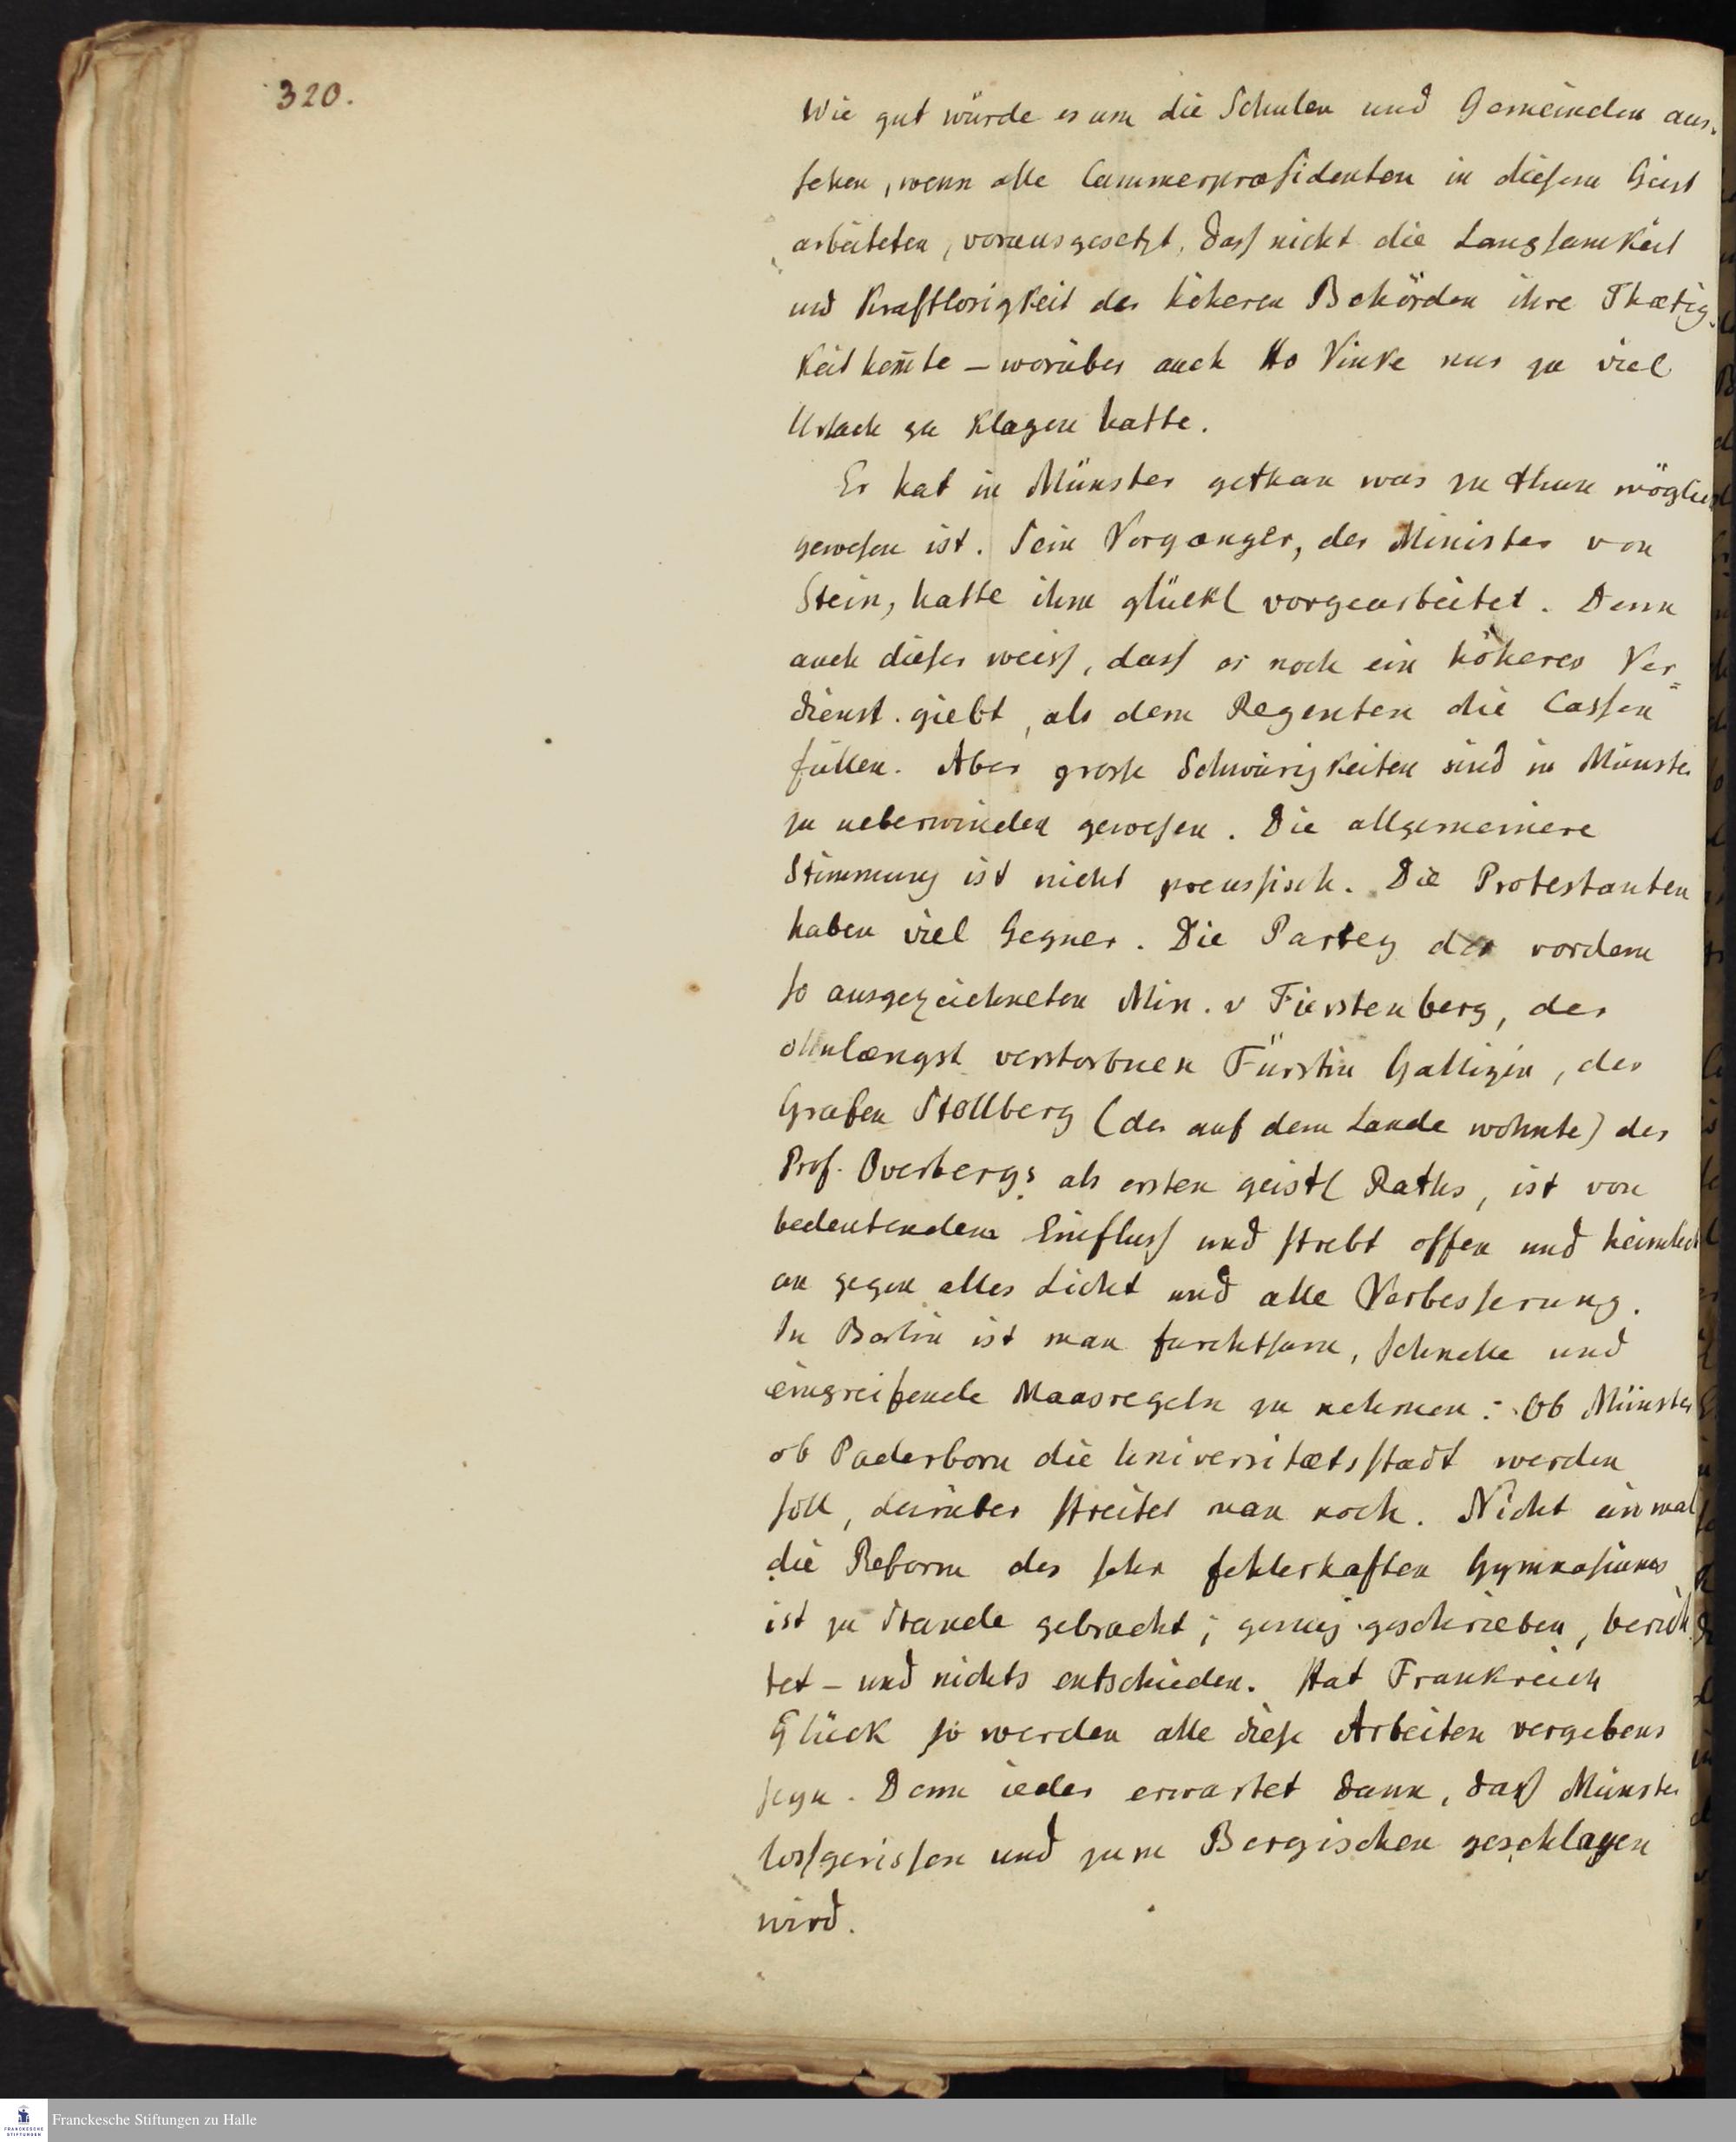 320.
Wie gut würde es um die Schulen und Gemeinden aus-
sehen, wenn alle Cammerpræsidenten in diesem Geist
arbeiteten, vorausgesetzt, dass nicht die Langsamkeit
und Kraftlosigkeit der höheren Behörden ihre Thætig-
keit hem̄te – worüber auch H v Vinke nur zu viel
Ursach zu klagen hatte.
Er hat in Münster gethan was zu thun möglich
gewesen ist. Sein Vorgænger, der Minister von
Stein, hatte ihm glückl vorgearbeitet. Denn
auch dieser weiss, dass es noch ein höheres Ver=
dienst giebt, als dem Regenten die Cassen
füllen. Aber grosse Schwürigkeiten sind in Münster
zu ueberwinden gewesen. Die allgemeinere
Stimmung ist nicht preussisch. Die Protestanten
haben viel Gegner. Die Partey des vordem
so ausgezeichneten Min. v Fürstenberg, der
ohnlængst verstorbnen Fürstin Gallizin, des
Grafen Stollberg (der auf dem Lande wohnte) des
Prof. Overbergs als ersten geistl Raths, ist von
bedeutendem Einfluss und strebt offen und heimlich
an gegen alles Licht und alle Verbesserung.
In Berlin ist man furchtsam, schnelle und
eingreifende Maasregeln zu nehmen: Ob Münster
ob Paderborn die Universitætsstadt werden
soll, darüber streitet man noch. Nicht einmal
die Reform des sehr fehlerhaften Gymnasiums
ist zu Stande gebracht; genug geschrieben, berich
tet – und nichts entschieden. Hat Frankreich
Glück so werden alle diese Arbeiten vergebens
seyn. Denn ieder erwartet dann, daß Münster
lossgerissen und zum Bergischen geschlagen
wird.
Franckesche Stiftungen zu Halle
FRANCKESCHE
STIFTUNGEN